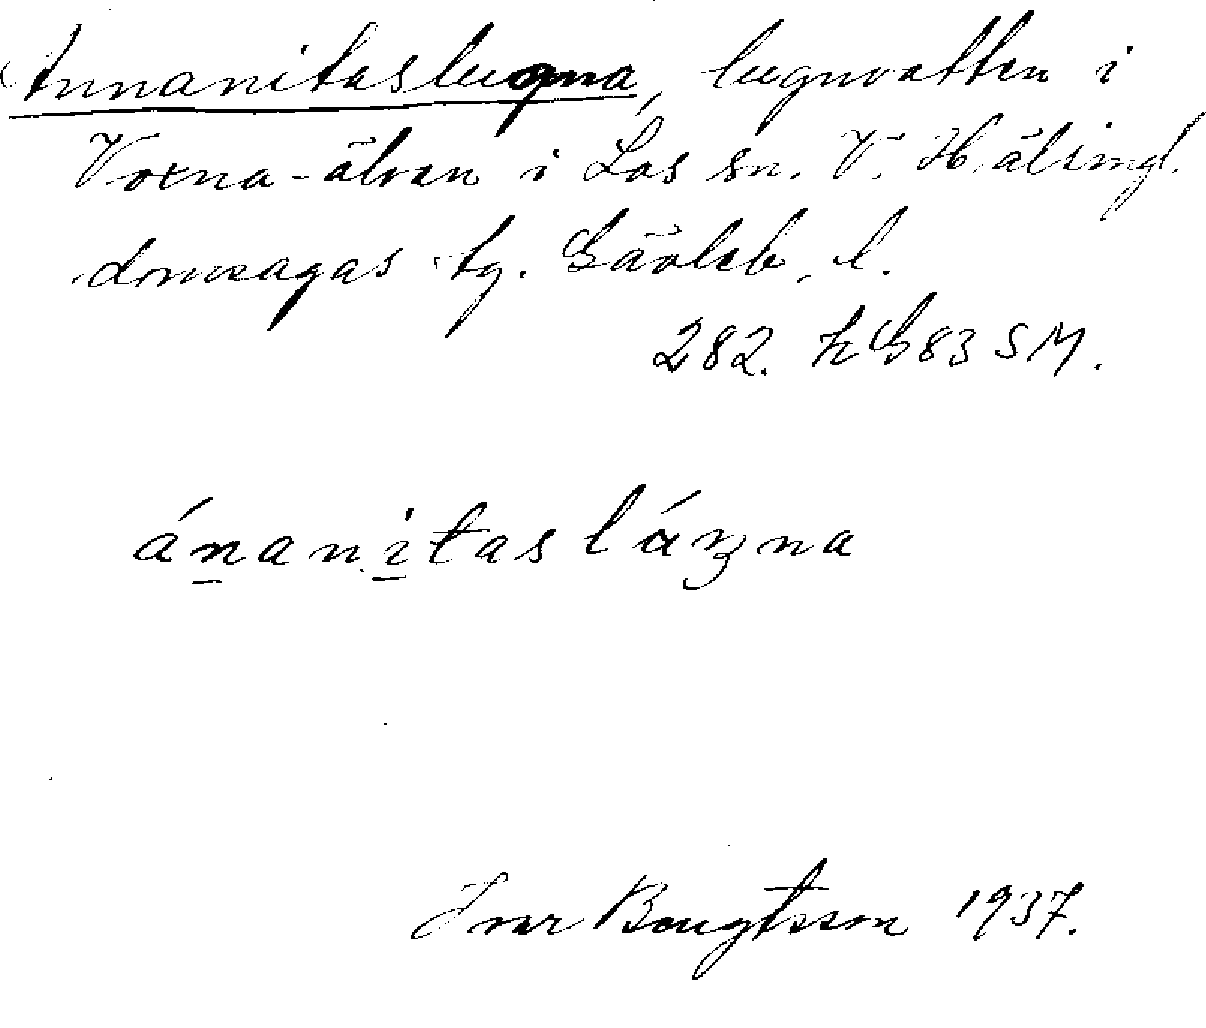 Annanitaslugna, lugnvatten i
Voxna-älven i Los sn. V. Hälsingl.
domsagas tg. Gävleb. l.
282. h G 83 SM.
ánanitasláʒna
Ivar Bengtsson 1937.